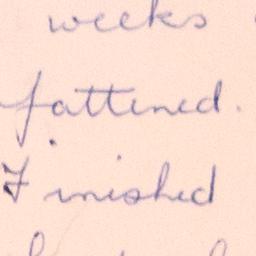 weeks
fattened.
Finished